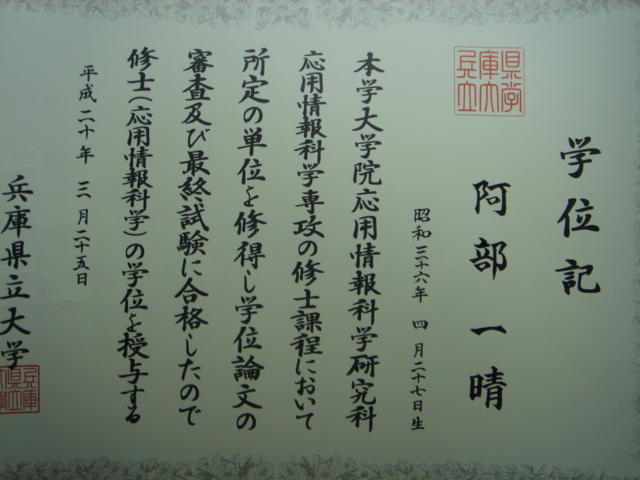 学位記
兵庫県立大学
阿部一晴
昭和三十六年 四月二十七日生
本学大学院応用情報科学研究科
応用情報科学専攻の修士課程において
所定の単位を修得し学位論文の
審査及び最終試験に合格したので
修士（応用情報科学）の学位を授与する
平成二十年 三月二十五日
兵庫県立大学